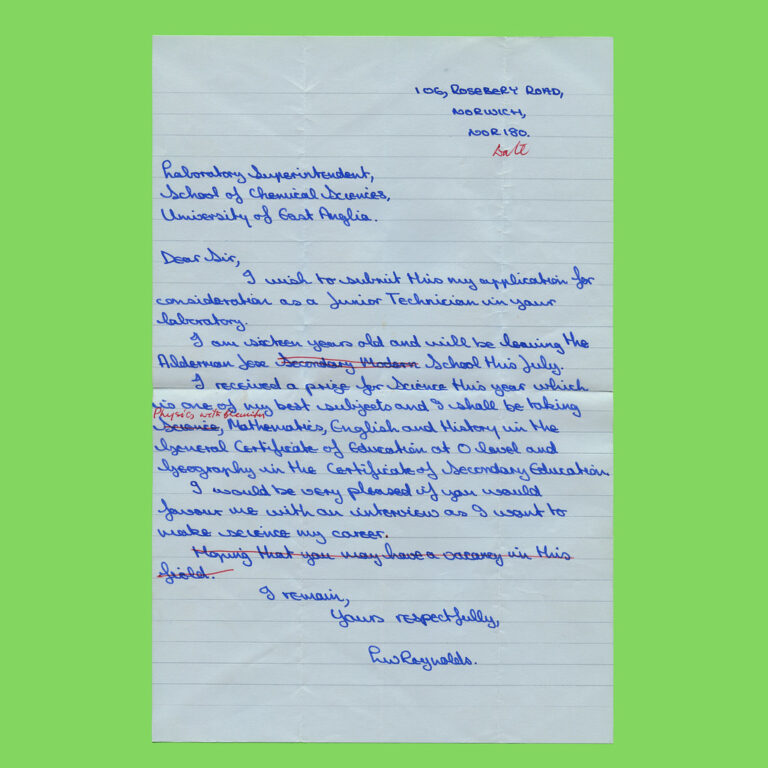 106, ROSEBERY ROAD,
NORWICH,
NOR 18O.
Date
Laboratory Superintendent,
School of Chemical Sciences,
University of East Anglia.
Dear Sir,
I wish to submit this my application for
consideration as a Junior Technician in your
laboratory.
I am sixteen years old and will be leaving the
Alderman Jexe Secondary Modern School this July.
I received a prize for Science this year which
is one of my best subjects and I shall be taking
Physics with Chemistry
Science, Mathematics, English and History in the
General Certificate of Education at O level and
Geography in the Certificate of Secondary Education
I would be very pleased if you would
favour me with an interview as I want to
make science my career.
Hoping that you may have a vacancy in this
field.
I remain,
Yours respectfully,
LW Reynolds.